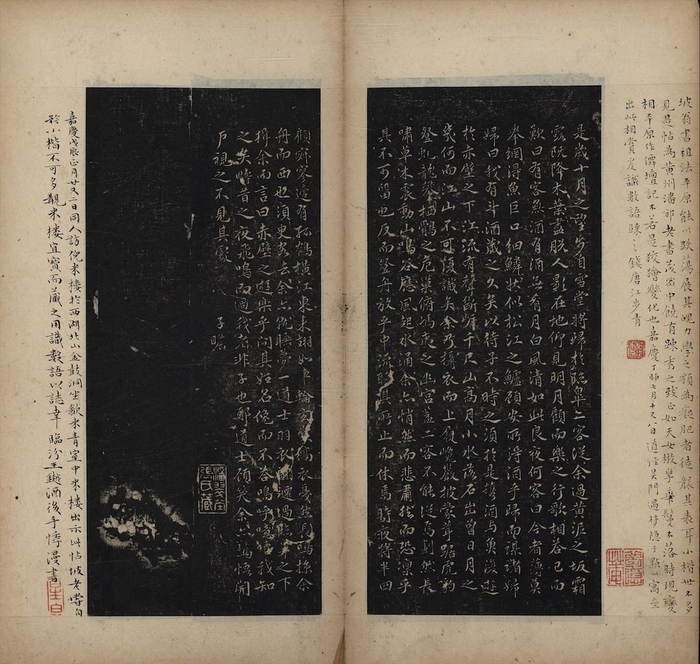 坡翁書祖法平原能以跌蕩展其
見是帖為黃州潘邠老書茂密中饒有疎秀之致正如天女散 鬢不落時現變
相平原作 壇記不若是狡獪變化也嘉慶丁卯七月十又八日道 吳門過
出此相賞爰識數語 錢唐江步青
是歲十月之望步自雪堂將歸於臨皋二客從余過黃泥之坂霜
露既降木葉盡脫人影在地仰見明月顧而樂之行歌相答已而
歎曰有客無酒有酒無肴月白風清如此良夜何客曰今者薄莫
舉網得魚巨口細鱗狀似松江之鱸顧安所得酒乎歸而謀諸婦
婦曰我有斗酒藏之久矣以待子不時之須於是攜酒與魚復遊
於赤壁之下江流有聲斷岸千尺山高月小水落石出曾日月之
幾何而江山不可復識矣余乃攝衣而上履巉巖披蒙茸踞虎豹
登虬龍攀栖鶻之危巢俯馮夷之幽宮蓋二客不能從焉劃然長
嘯草木震動山鳴谷應風起水涌余亦悄然而悲肅然而恐凜乎
其不可留也反而登舟放乎中流聽其所止而休焉時夜將半四
顧寂寥適有孤鶴橫江東來翅如車輪玄裳縞衣戛然長鳴掠余
舟而西也須臾客去余亦就睡夢一道士羽衣蹁躚過臨皋之下
揖余而言曰赤壁之遊樂乎問其姓名俛而不答嗚呼噫嘻我知
之矣疇昔之夜飛鳴而過我者非子也耶道士顧笑余亦驚悟開
戶視之不見其處 子瞻
嘉慶戊辰正月廿又二日同人訪倪米樓於西湖北山金鼓洞坐歗米青室中米樓出示此帖坡老書
於小楷不可多觀米樓宜寶而藏之用識數語以誌幸 臨汾王樾酒後手悸漫書